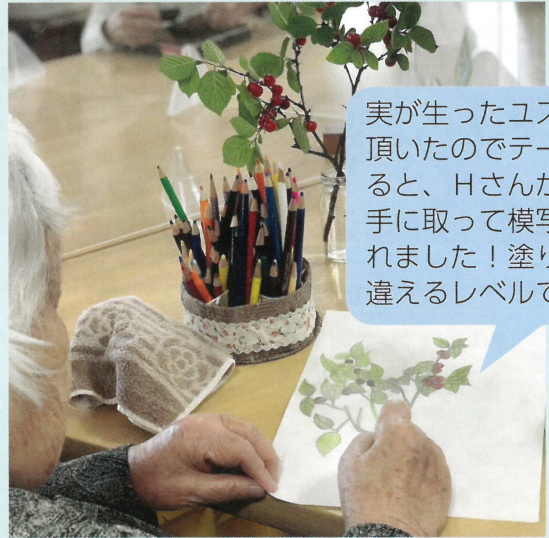 実が生ったユス
頂いたのでテー
ると、Hさんが
手に取って模写
れました！塗り
違えるレベルで